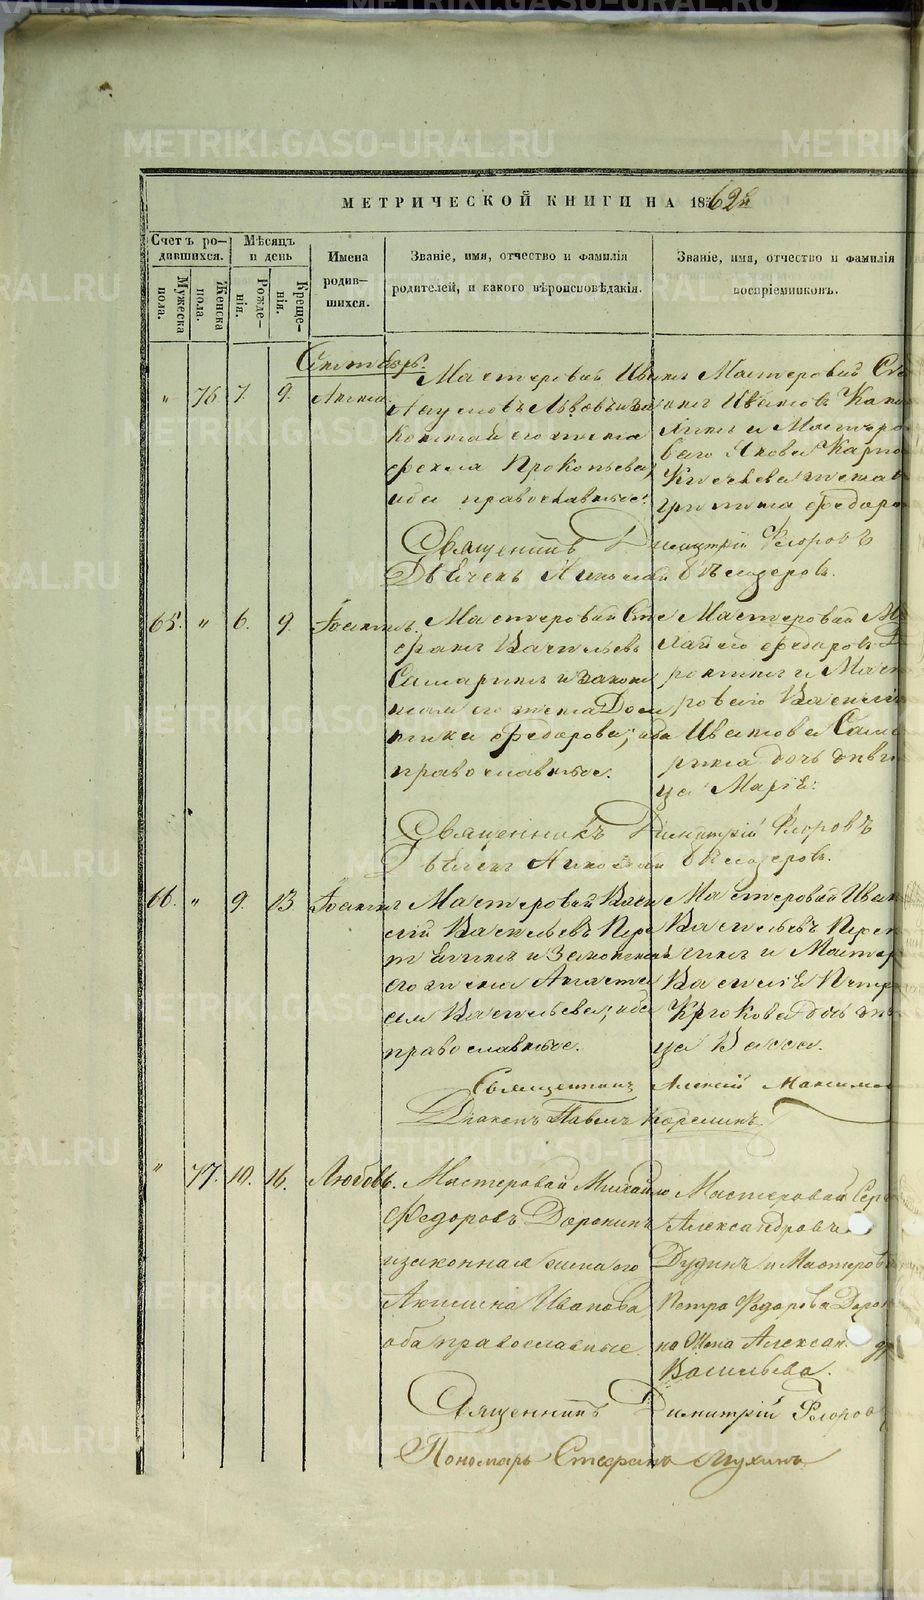 METRIKI.GASO-URAL.RU
МЕТРИЧЕСКОЙ КНИГИ НА 1862й
Счетъ ро-
дившихся.
Мужеска
пола.
Женска
пола.
Мѣсяцъ
и день
Рожде-
нія.
Креще-
нія.
Имена
родив-
шихся.
Званіе, имя, отчество и фамилія
родителей, и какого вѣроисповѣданія.
Званіе, имя, отчество и фамилія
воспріемниковъ.
Сентябрь.
" 76 7. 9.
Мастеровый Иванъ
его жена
Прокопьева,
оба православные.
Мастеровый
Ивановъ
и Мастеро
ваго Якова Карпо
жена
Федоро
Священникъ Димитрій Флоровъ
Дьячекъ Николай Бѣлозеровъ.
65. " 6. 9. Іоаннъ.
Мастеровый Сте
фанъ Васильевъ
Самаринъ и закон
ная его жена Дом
ника Федорова; оба
православные.
Мастеровый Ми
хайло Федоровъ
и Масте
роваго Василія
Иванова Сама
рина дочь дѣви
ца Марія.
Священникъ Димитрій Флоровъ
Дьячекъ Николай Бѣлозеровъ.
66. " 9. 13 Іоаннъ
Мастеровый Васи
лій Васильевъ Пере
и Законная
его жена Анаста
сія Васильева; оба
православные.
Мастеровый Иванъ
Васильевъ Пере
и Мастер
Василія Петро
Крюкова дочь дѣв
ца Васса.
Священникъ Алексій Максимо
Діаконъ Павелъ
" 77. 10. 16. Любовь.
Мастеровой Михайло
Федоровъ Доронинъ
и законная жена его
Акилина Иванова,
оба православные.
Мастеровой Сер
Александровъ
Дудинъ и Мастеров
Петра Федорова Дорон
на Жена Александр
Васильева.
Священникъ Димитрій Флоров
Пономарь Стефанъ Мухинъ